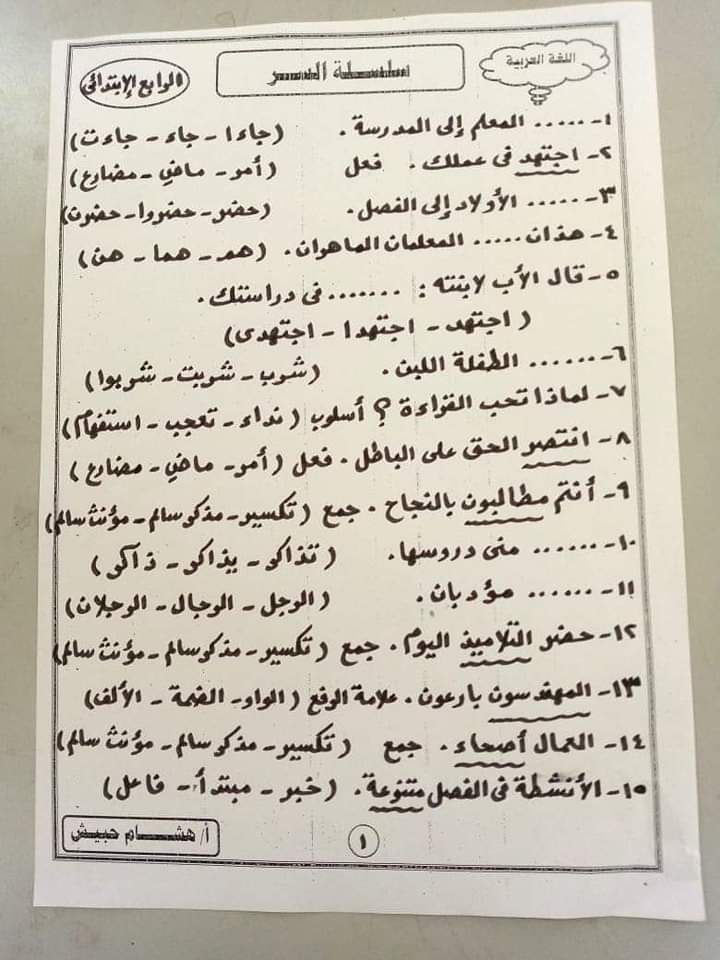 اللغة العربية
سلسلة النسر
الرابع الإبتدائى
١- ..... المعلم إلى المدرسة . (جاءا - جاء - جاءت)
٢- اجتهد فى عملك . فعل (أمر - ماضي - مضارع)
٣- ...... الأولاد إلى الفصل . (حضر - حضروا - حضرن)
٤- هذان ..... المعلمان الماهران . (هم - هما - هن)
٥- قال الأب لابنته : ....... فى دراستك .
(اجتهد - اجتهدا - اجتهدى)
٦- ...... الطفلة اللبن . (شرب - شربت - شربوا)
٧- لماذا تحب القراءة ؟ أسلوب (نداء - تعجب - استفهام)
٨- انتصر الحق على الباطل . فعل (أمر - ماضي - مضارع)
٩- أنتم مطالبون بالنجاح . جمع (تكسير - مذكر سالم - مؤنث سالم)
١٠- ...... منى دروسها . (تذاكر - يذاكر - ذاكر)
١١- ...... مؤدبان . (الرجل - الرجال - الرجلان)
١٢- حضر التلاميذ اليوم . جمع (تكسير - مذكر سالم - مؤنث سالم)
١٣- المهندسون بارعون . علامة الرفع (الواو - الضمة - الألف)
١٤- العمال أصحاء . جمع (تكسير - مذكر سالم - مؤنث سالم)
١٥- الأنشطة فى الفصل متنوعة . (خبر - مبتدأ - فاعل)
١
أ/ هشام حبيش